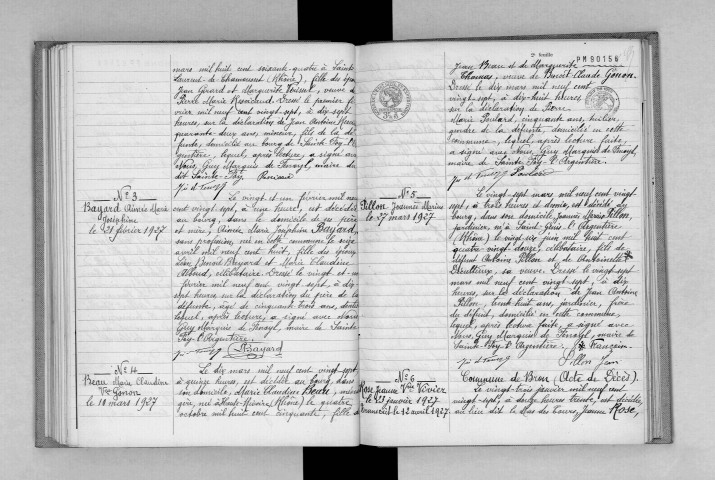 mars mil huit cent soixante quatre à Sainte
Laurent-de-Chamousset (Rhône), fille des époux
Jean Girard et Marguerite, veuve de
Pierre Marie. Dressé le premier fé-
vrier mil neuf cent vingt-sept, à dix-sept
heures, sur la déclaration de Jean Antoine
quarante-deux ans, mineur, fils de la dé-
funte, domicilié au bourg de Sainte-Foy-l'Ar-
gentière, lequel, après lecture, a signé avec
Nous, Guy Marquis de Fenoyl, maire du
dit Sainte-Foy.
No 3
Bayard Aimée Marie
Joséphine
le 21 février 1927
Le vingt et un février mil neuf
cent vingt-sept, à une heure, est décédée
au bourg, dans le domicile de ses père
et mère, Aimée Marie Joséphine Bayard,
sans profession, née en cette commune le
avril mil neuf cent huit, fille des époux
Jean Benoît Bayard et Marie Claudine
, célibataire. Dressé le vingt et un
février mil neuf cent vingt sept, à dix-
sept heures sur la déclaration du père de la
défunte, âgé de cinquante trois ans,
lequel, après lecture, a signé avec Nous
Guy Marquis de Fenoyl, maire de Sainte-
Foy-l'Argentière.
Bayard
No 4
Beau Marie Claudine
Vve Gonon
le 10 mars 1927
Le dix mars mil neuf cent vingt-sept
à quinze heures, est décédée au bourg, dans
son domicile, Marie Claudine Beau,
née à Haute-Rivoire (Rhône) le quatre
octobre mil huit cent cinquante, fille de
2e feuille
PM 90156
Jean Beau et de Marguerite
Thomas, veuve de Benoît Claude Gonon.
Dressé le dix mars mil neuf cent
vingt-sept, à dix-huit heures
sur la déclaration de Pierre
Marie, cinquante ans,
gendre de la défunte, domicilié en cette
commune, lequel, après lecture faite,
a signé avec Nous, Guy Marquis de Fenoyl,
maire de Sainte Foy l'Argentière.
No 5
Pillon Joannès Marius
le 27 mars 1927
Le vingt-sept mars mil neuf cent vingt-
sept, à trois heures et demie, est décédé au
bourg, dans son domicile Joannès Marius Pillon,
jardinier, né à Saint-Genis l'Argentière
(Rhône) le vingt-six juin mil huit cent
quatre vingt douze, célibataire, fils de
défunt Antoine Pillon et de Antoinette
, sa veuve. Dressé le vingt-sept
mars mil neuf cent vingt-sept, à dix
heures, sur la déclaration de Jean Antoine
Pillon, trente huit ans, jardinier, frère
du défunt, domicilié en cette commune,
lequel, après lecture faite, a signé avec
Nous, Guy Marquis de Fenoyl, maire de
Sainte-Foy-l'Argentière.
Pillon Jean
No 6
Rose Jeanne Vve Vivier
le 23 janvier 1927
Transcrit le 12 avril 1927.
Commune de Bron (Acte de Décès).
Le vingt-trois janvier mil neuf cent
vingt-sept, à douze heures trente, est décédée
au lieu dit le Mas des Tours, Jeanne Rose,